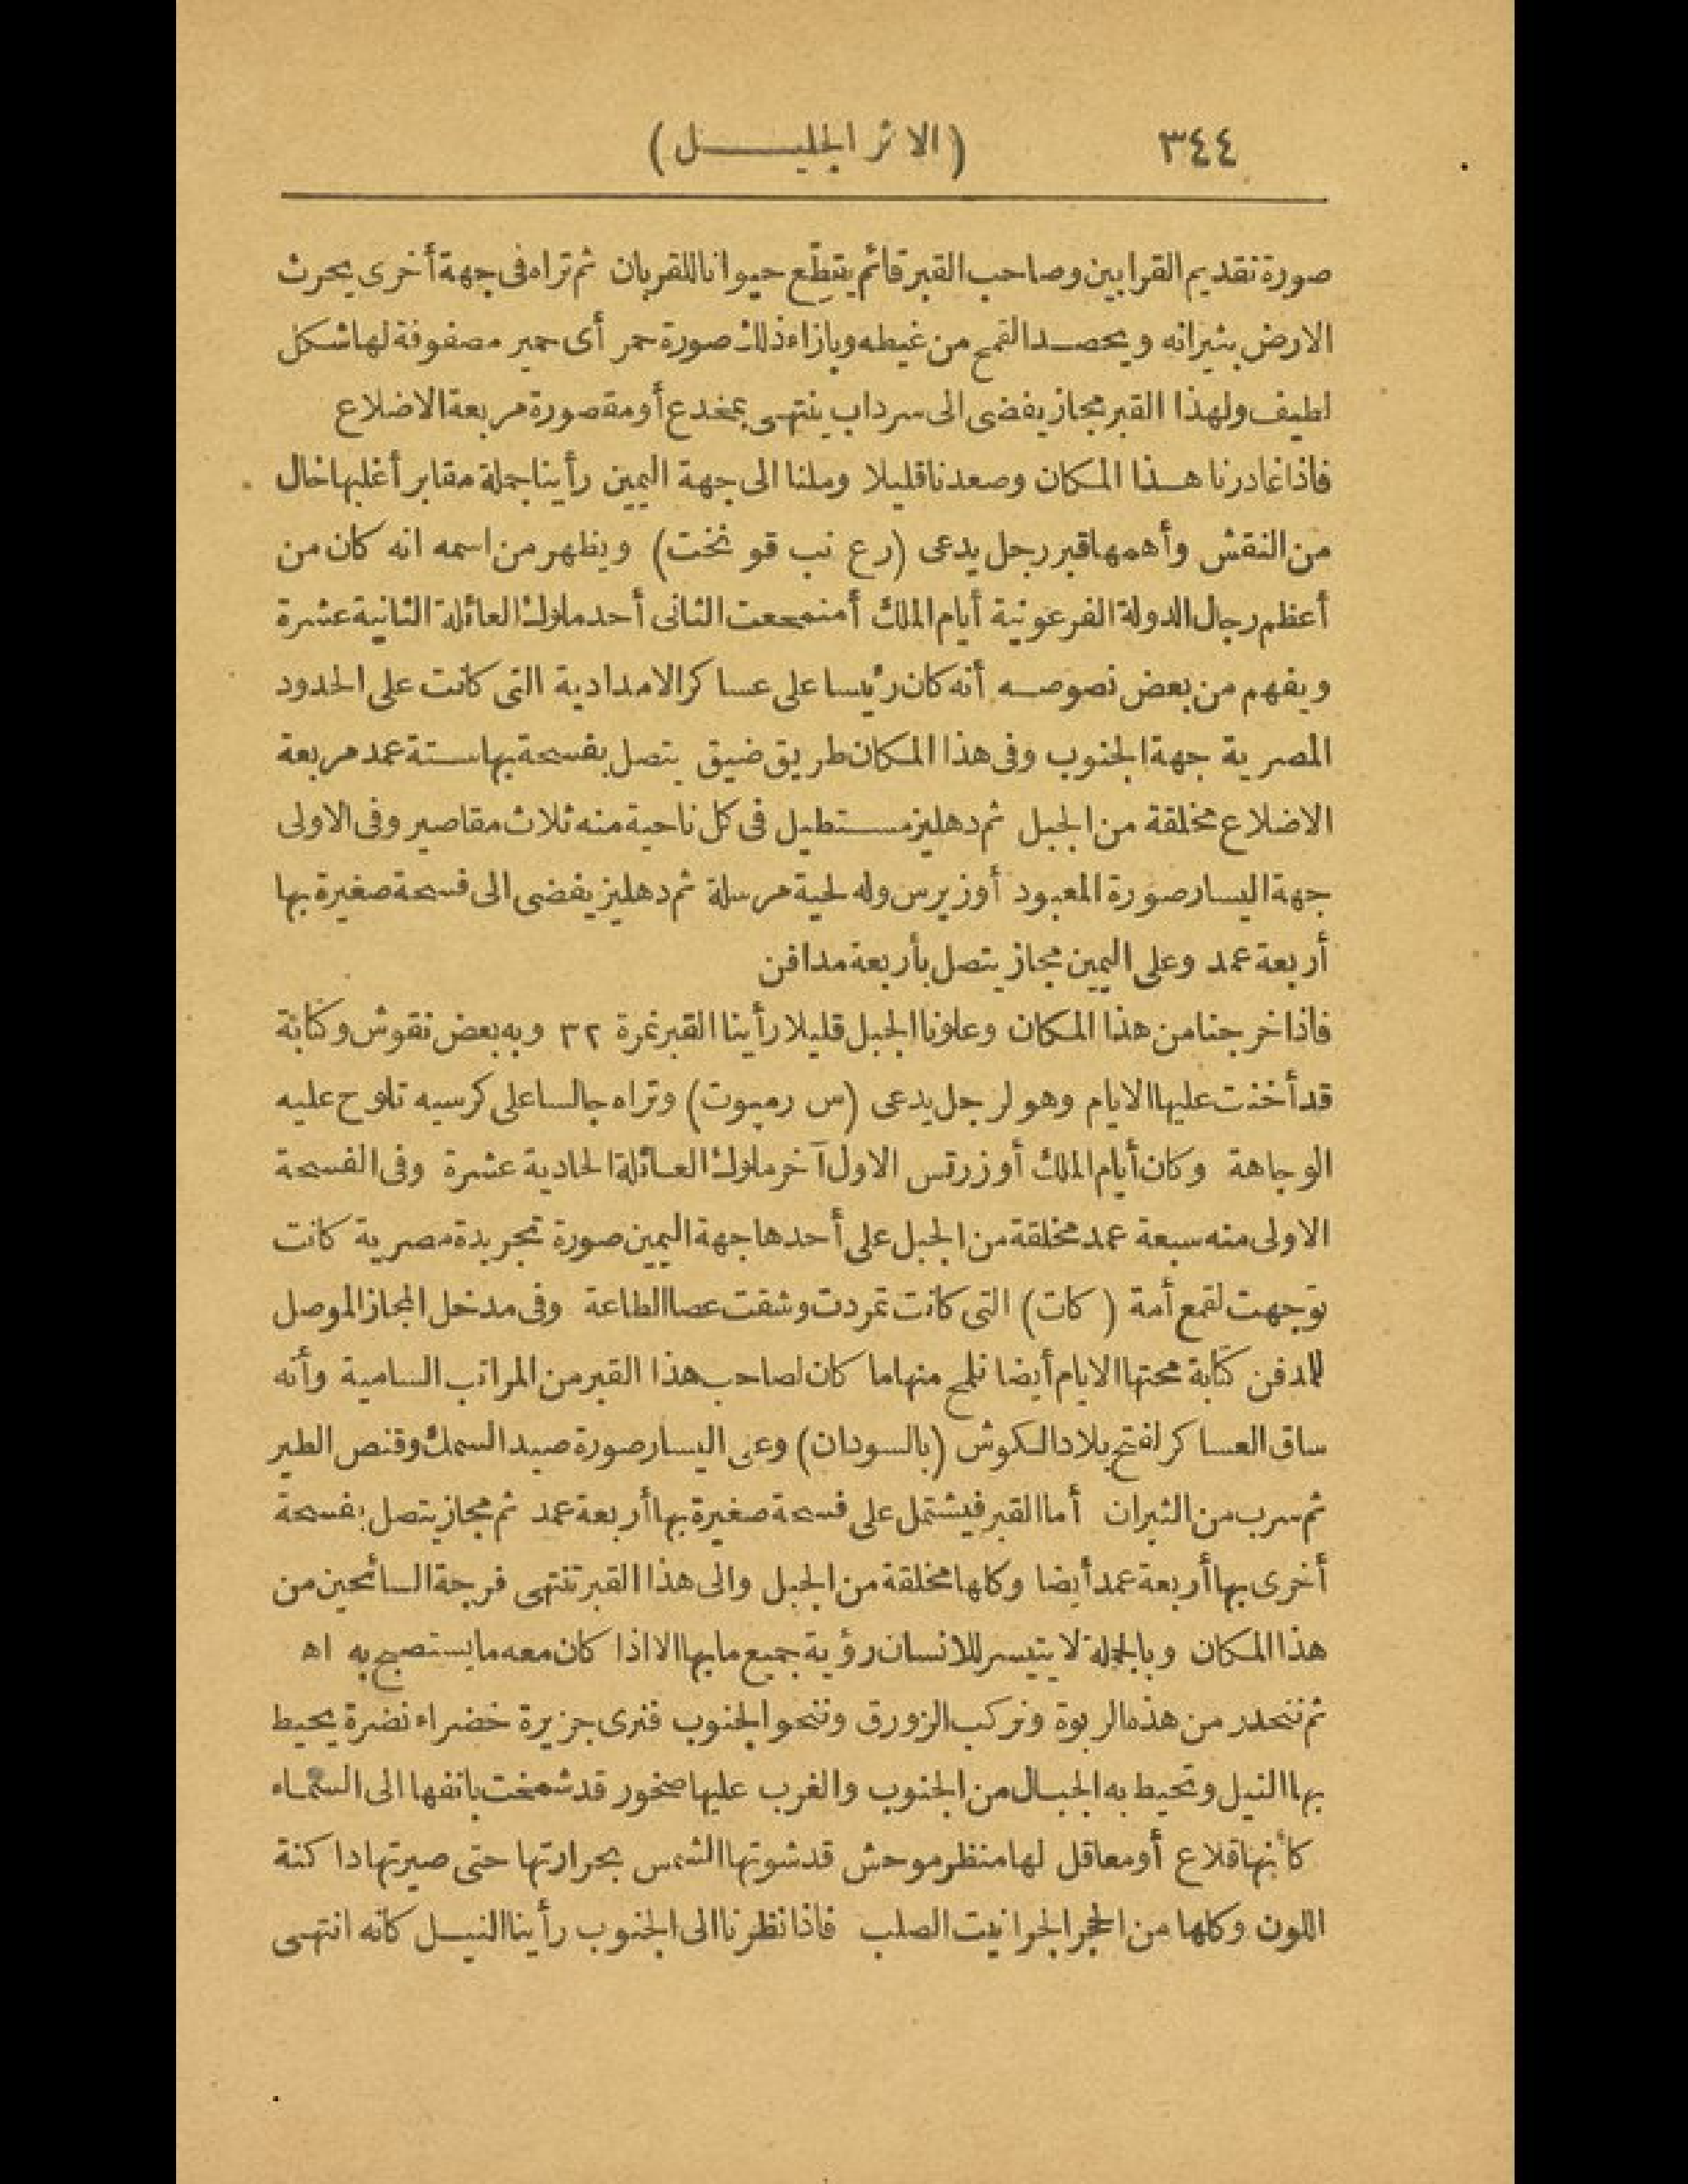 ٣٤٤ (الاثر الجليل)
صورة تقديم القرابين وصاحب القبر قائم يقطّع حيوانا للقربان ثم تراه فى جهة أخرى يحرث
الارض بثيرانه ويحصد القمح من غيطه وبازاء ذلك صورة حمر أى حمير مصفوفة لها شكل
لطيف ولهذا القبر مجاز يفضى الى سرداب ينتهى بمخدع أو مقصورة مربعة الاضلاع
فاذا غادرنا هذا المكان وصعدنا قليلا وملنا الى جهة اليمين رأينا جملة مقابر أغلبها خال
من النقش وأهمها قبر رجل يدعى (رع نب قو نخت) ويظهر من اسمه انه كان من
أعظم رجال الدولة الفرعونية أيام الملك أمنمحعت الثانى أحد ملوك العائلة الثانية عشرة
ويفهم من بعض نصوصه أنه كان رئيسا على عساكر الامدادية التى كانت على الحدود
المصرية جهة الجنوب وفى هذا المكان طريق ضيق يتصل بفسحة بها ستة عمد مربعة
الاضلاع مخلقة من الجبل ثم دهليز مستطيل فى كل ناحية منه ثلاث مقاصير وفى الاولى
جهة اليسار صورة المعبود أوزيرس وله لحية مرسلة ثم دهليز يفضى الى فسحة صغيرة بها
أربعة عمد وعلى اليمين مجاز يتصل بأربعة مدافن
فاذا خرجنا من هذا المكان وعلونا الجبل قليلا رأينا القبر نمرة ٣٢ وبه بعض نقوش وكتابة
قد أخنت عليها الايام وهو لرجل يدعى (س رمپوت) وتراه جالسا على كرسيه تلوح عليه
الوجاهة وكان أيام الملك أوزرتس الاول آخر ملوك العائلة الحادية عشرة وفى الفسحة
الاولى منه سبعة عمد مخلقة من الجبل على أحدها جهة اليمين صورة تجريدة مصرية كانت
توجهت لقمع أمة (كات) التى كانت تمردت وشقت عصا الطاعة وفى مدخل المجاز الموصل
للمدفن كتابة محتها الايام أيضا نلمح منها ما كان لصاحب هذا القبر من المراتب السامية وأنه
ساق العساكر لفتح بلاد الكوش (بالسودان) وعلى اليسار صورة صيد السمك وقنص الطير
ثم سرب من الثيران أما القبر فيشتمل على فسحة صغيرة بها أربعة عمد ثم مجاز يتصل بفسحة
أخرى بها أربعة عمد أيضا وكلها مخلقة من الجبل والى هذا القبر تنتهى فرجة السائحين من
هذا المكان وبالجملة لا يتيسر للانسان رؤية جميع ما بها الا اذا كان معه ما يستصبح به اه
ثم ننحدر من هذه الربوة ونركب الزورق وننحو الجنوب فنرى جزيرة خضراء نضرة يحيط
بها النيل وتحيط به الجبال من الجنوب والغرب عليها صخور قد شمخت بانفها الى السماء
كأنها قلاع أو معاقل لها منظر موحش قد شوتها الشمس بحرارتها حتى صيرتها داكنة
اللون وكلها من الحجر الجرانيت الصلب فاذا نظرنا الى الجنوب رأينا النيل كانه انتهى